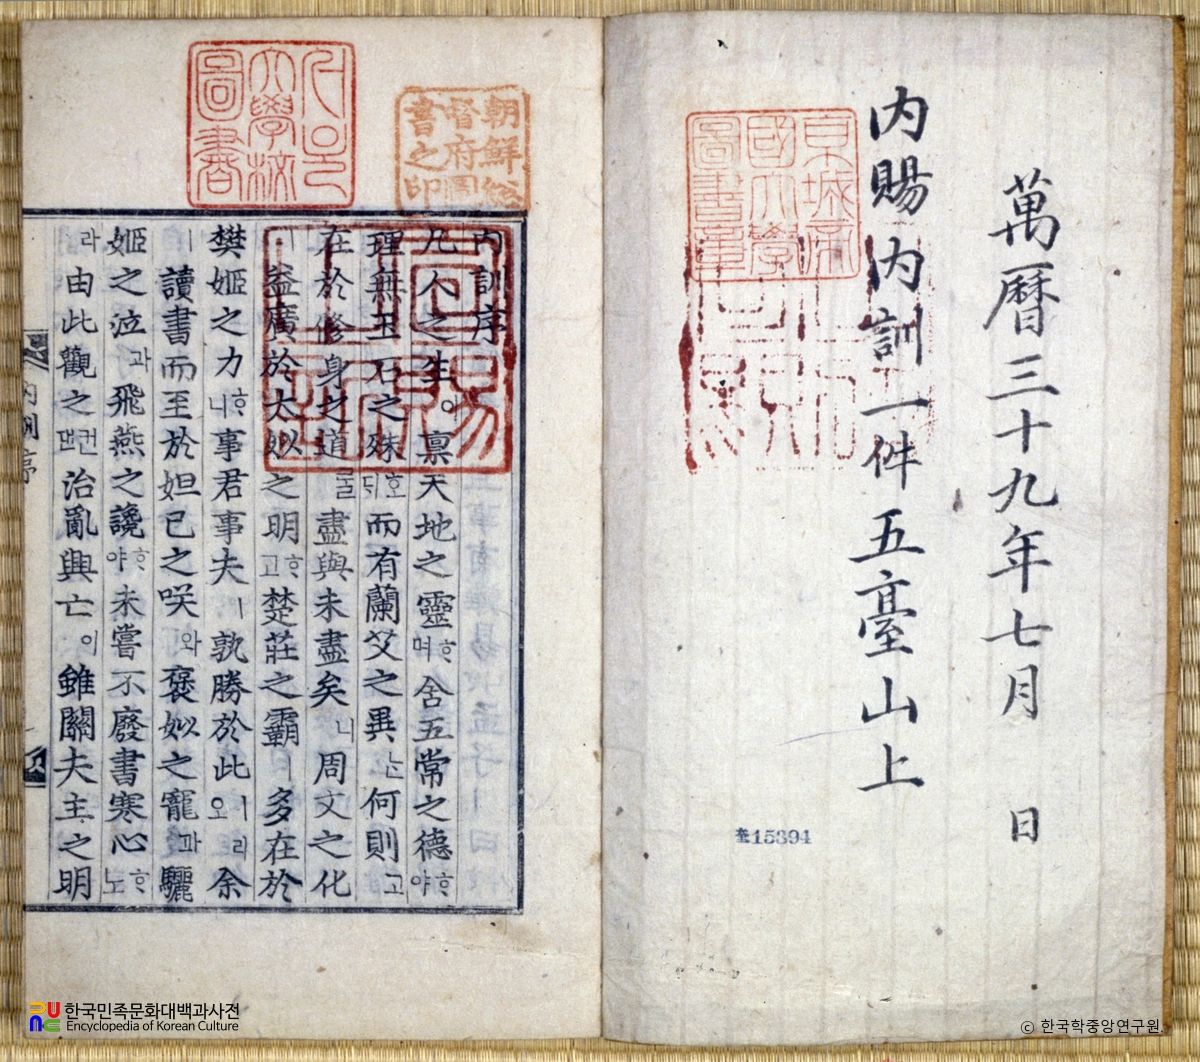 萬曆三十九年七月 日
内賜内訓一件五臺山上
京城帝國大學圖書章
奎15394
朝鮮總督府圖書之印
서울大學校圖書
內訓序
凡人之生이稟天地之靈ᄒᆞ며含五常之德ᄒᆞ야
理無玉石之殊호ᄃᆡ而有蘭艾之異ᄂᆞᆫ何則고
在於修身之道ᄅᆞᆯ盡與未盡矣니周文之化
ㅣ益廣於太姒之明ᄒᆞ고楚莊之霸ㅣ多在於
樊姬之力ᄒᆞ니事君事夫ㅣ孰勝於此ㅣ리오余
ㅣ讀書而至於妲己之咲와褒姒之寵과驪
姬之泣과飛燕之讒ᄒᆞ야未嘗不廢書寒心ᄒᆞ노
라由此觀之컨댄治亂興亡이雖關夫主之明
內訓序
한국민족문화대백과사전
Encyclopedia of Korean Culture
© 한국학중앙연구원